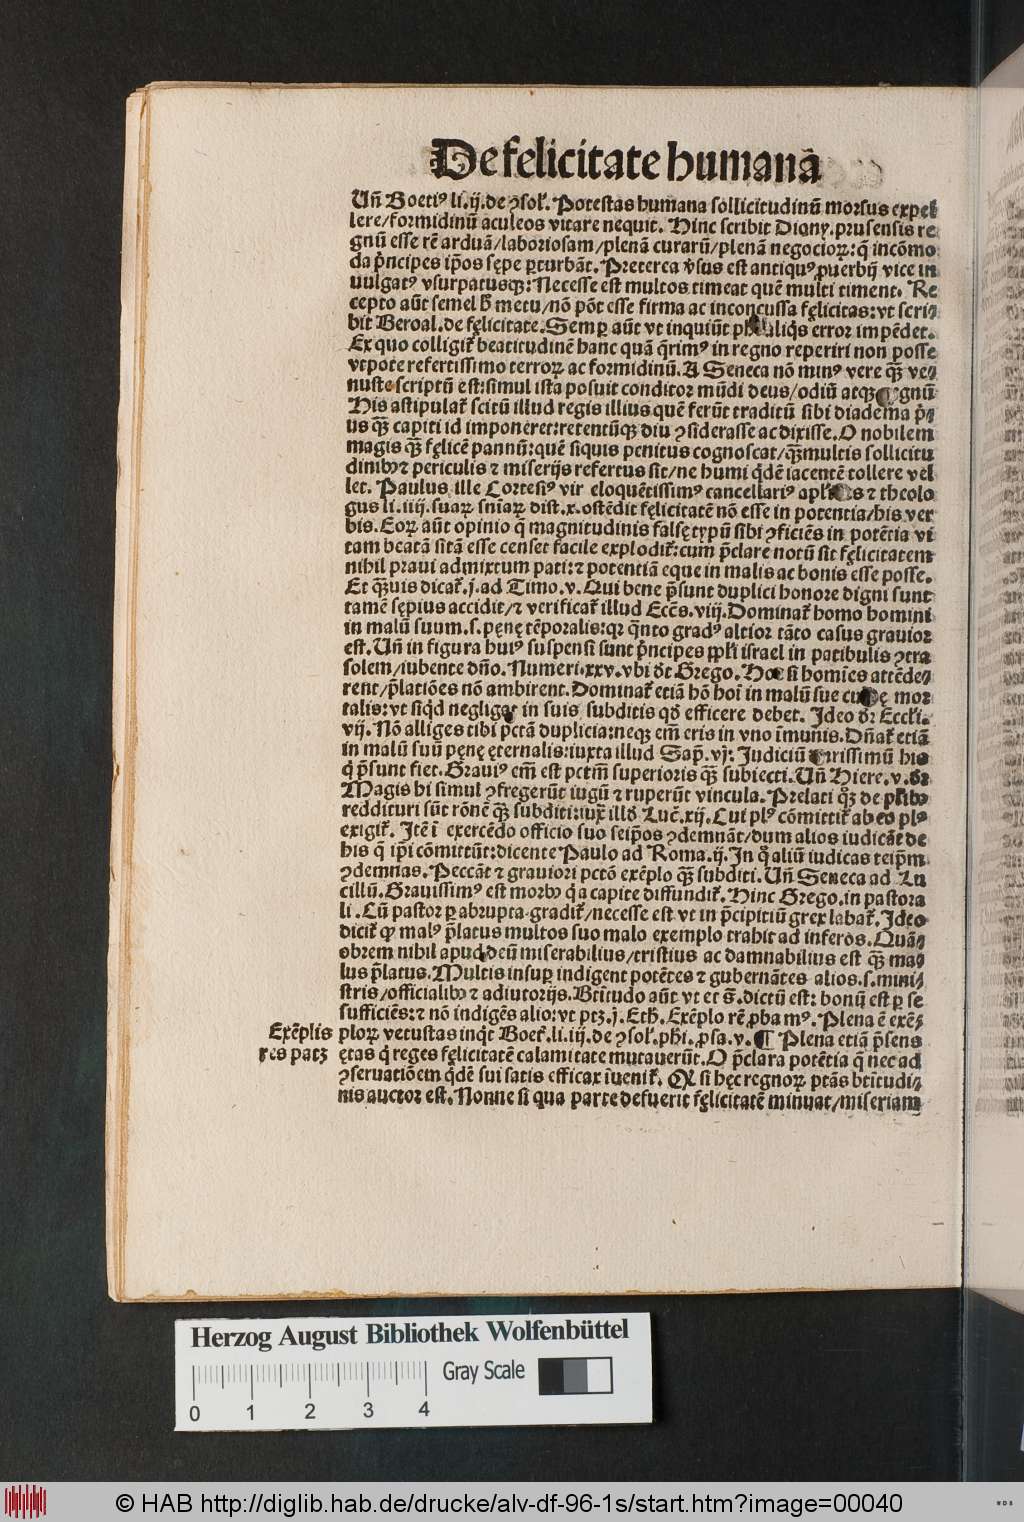 De felicitate humanā
Uñ Boetiꝰ li.ij.de ꝯsol̕. Potestas humana sollicitudinū morsus expel
lere/formidinū aculeos vitare nequit. Hinc scribit Diony. prusensis re
gnū esse rē arduā/laboriosam/plenā curarū/plenā negocioꝝ: q̄ incōmo
da p̄ncipes ip̄os sępe ꝑturbāt. Preterea v̓sus est antiquꝰ ꝓuerbij vice in
vulgatꝰ vsurpatusqꝫ: Necesse est multos timeat quē multi timent. Re
cepto aūt semel h̓ metu/nō pōt esse firma ac inconcussa fęlicitas: vt scri⸗
bit Beroal. de fęlicitate. Semꝑ aūt vt inquiūt error impēdet.
Ex quo colligit̕ beatitudinē hanc quā q̄rimꝰ in regno reperiri non posse
vtpote refertissimo terroꝝ ac formidinū. A Seneca nō minꝰ vere qꝫ̄ ve⸗
nuste scriptū est: simul ista posuit conditor mūdi deus/odiū atqꝫ regnū
His astipulat̕ scitū illud regis illius quē ferūt traditū sibi diadema p̄⸗
us qꝫ̄ capiti id imponeret: retentūqꝫ diu ꝯsiderasse ac dixisse. O nobilem
magis qꝫ̄ fęlicē pannū: quē siquis penitus cognoscat/qꝫ̄ multis sollicitu
dinibꝰ ⁊ periculis ⁊ miserijs refertus sit/ne humi q̇dē iacentē tollere vel
let. Paulus ille Cortesiꝰ vir eloquētissimꝰ cancellariꝰ apl̕icus ⁊ theolo
gus li.iiij. suaꝝ sniaꝝ dist.x. ostēdit fęlicitatē nō esse in potentia/his ver
bis. Eoꝝ aūt opinio q̄ magnitudinis falsę typū sibi ꝯficiēs in potētia vi
tam beatā sitā esse censet facile explodit̕: cum p̄clare notū sit fęlicitatem
nihil praui admixtum pati: ⁊ potentiā eque in malis ac bonis esse posse.
Et qꝫ̄uis dicat̕.j.ad Timo.v. Qui bene p̄sunt duplici honore digni sunt
tamē sępius accidit/⁊ verificat̕ illud Ecēs.viij. Dominat̕ homo homini
in malū suum.s. pęnę tēporalis: qꝛ q̄nto gradꝰ altior tāto casus grauior
est. Uñ in figura huiꝰ suspensi sunt p̄ncipes ppl̕i israel in patibulis ꝯtra
solem/iubente dn̄o. Numeri.xxv. vbi dt̕ Grego. Hoc si homīes attēde⸗
rent/p̄latiōes nō ambirent. Dominat̕ etiā hō hoi̅ in malū sue culpę mor
talis: vt siq̇d negligat in suis subditis qd̓ efficere debet. Ideo dr̕ Eccl̕i.
vij. Nō alliges tibi pctā duplicia: neqꝫ em̄ eris in vno īmunis. Dn̄at̕ etiā
in malū suū pęnę ęternalis: iuxta illud Sap̄.vj. Judiciū durissimū his
q̇ p̄sunt fiet. Grauiꝰ em̄ est pctm̄ superioris qꝫ̄ subiecti. Uñ Hiere.v. dr̕
Magis hi simul ꝯfregerūt iugū ⁊ ruperūt vincula. Prelati qͦꝫ de pl̕ibꝰ
reddituri sūt rōnē qꝫ̄ subditi: iux̕ illd̓ Luc̄.xij. Cui plꝰ cōmittit̕ ab eo plꝰ
exigit̕. Itē ī exercēdo officio suo seip̄os ꝯdemnāt/dum alios iudicāt de
his q̄ ip̄i cōmittūt: dicente Paulo ad Roma.ij. In qͦ aliū iudicas teip̄m
ꝯdemnas. Peccāt ⁊ grauiori pctō exēplo qꝫ̄ subditi. Uñ Seneca ad Lu
cillū. Grauissimꝰ est morbꝰ q̇ a capite diffundit̕. Hinc Grego. in pastora
li. Cū pastor ꝑ abrupta gradit̕/necesse est vt in p̄cipitiū grex labat̕. Ideo
dicit̕ ꝙ malꝰ p̄latus multos suo malo exemplo trahit ad inferos. Quā⸗
obrem nihil apud deū miserabilius/tristius ac damnabilius est qꝫ̄ ma⸗
lus p̄latus. Multis insuꝑ indigent potētes ⁊ gubernātes alios.s. mini⸗
stris/officialibꝰ ⁊ adiutorijs. Btītudo aūt vt et s̄. dictū est: bonū est ꝑ se
sufficiēs: ⁊ nō indigēs alio: vt ptꝫ.j. Eth̕. Exēplo rē ꝓba mꝰ. Plena ē exē⸗
Exēplis ploꝝ vetustas inq̇t Boet̕.li.iij.de ꝯsol̕. ph̕i. ꝓsa.v. ¶ Plena etiā p̄sens
res patꝫ ętas q̄ reges fęlicitatē calamitate mutauerūt. O p̄clara potētia q̄ nec ad
ꝯseruatiōem q̇dē sui satis efficax īuenit̕. Qꝫ si hęc regnoꝝ ptās btītudi⸗
nis auctor est. Nonne si qua parte defuerit fęlicitatē minuat/miseriam
Herzog August Bibliothek Wolfenbüttel
Gray Scale
0 1 2 3 4
© HAB http://diglib.hab.de/drucke/alv-df-96-1s/start.htm?image=00040